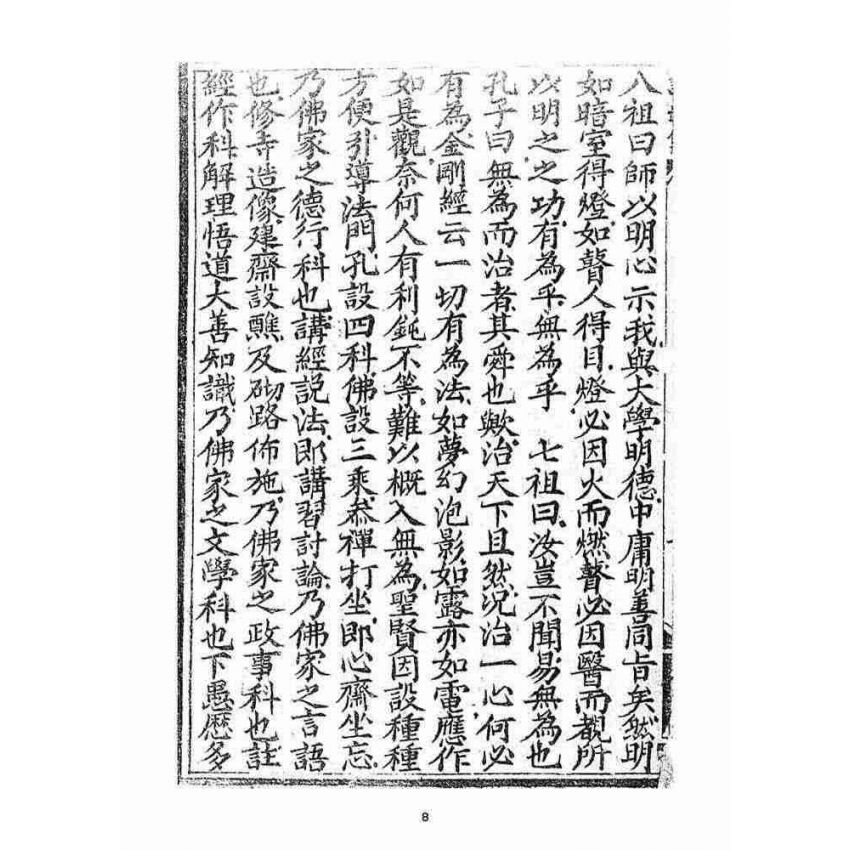 八祖曰師以明心示我與大學明德中庸明善同旨矣然明
如暗室得燈如瞽人得目燈必因火而燃瞽必因醫而覩所
以明之之功有為乎無為乎 七祖曰汝豈不聞易無為也
孔子曰無為而治者其舜也歟治天下且然况治一心何必
有為金剛經云一切有為法如夢幻泡影如露亦如電應作
如是觀奈何人有利鈍不等難以概入無為聖賢因設種種
方便引導法門孔設四科佛設三乘叅禪打坐即心齋坐忘
乃佛家之德行科也講經說法即講習討論乃佛家之言語
也修寺造像建齋設醮及砌路佈施乃佛家之政事科也註
經作科解理悟道大善知識乃佛家之文學科也下愚歷多
8